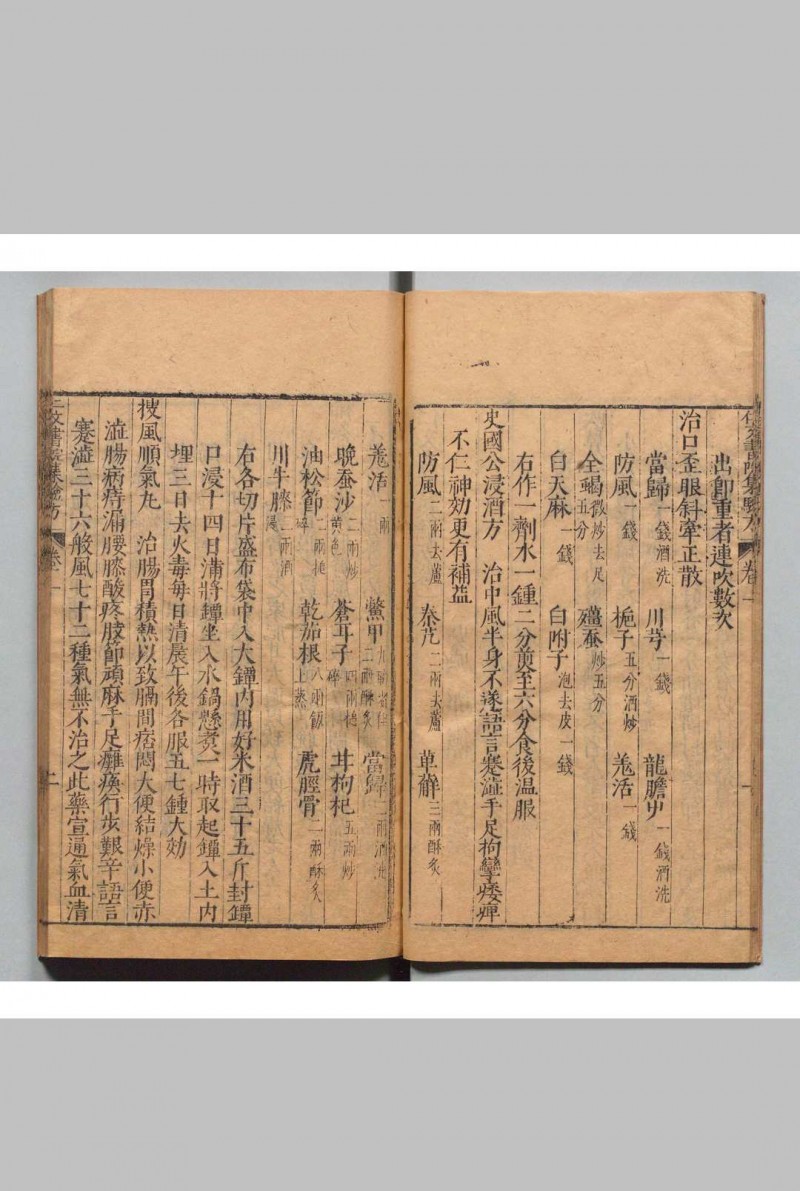 書院集驗方 卷一
出卽重者連吹數次
治口歪眼斜牽正散
當歸一錢酒洗 川芎一錢 龍膽艸一錢酒洗
防風一錢 梔子五分酒炒 羗活一錢
全蝎微炒去足五分 殭蚕炒五分
白天麻一錢 白附子泡去皮一錢
右作一劑水一鍾二分煎至六分食後温服
史國公浸酒方 治中風半身不遂語言蹇澁手足拘攣痿痺
不仁神効更有補益
防風二兩去蘆 秦艽二兩去蘆 萆薢三兩酥炙
羗活一兩 鱉甲 當歸
晩蚕沙二兩炒黃色 蒼耳子四兩槌碎 甘枸杞五兩炒
油松節二兩槌碎 乾茄根八兩飯上蒸 虎脛骨二兩酥炙
川牛膝二兩酒
右各切片盛布袋中入大罈内用好米酒三十五斤封罈
口浸十四日滿將罈坐入水鍋懸煑一時取起罈入土内
埋三日去火毒每日清晨午後各服五七鍾大効
搜風順氣丸 治腸胃積熱以致膈間痞悶大便結燥小便赤
澁腸病痔漏腰膝酸疼肢節頑麻手足癱瘓行步艱辛語言
蹇澁三十六般風七十二種氣無不治之此藥宣通氣血清
書院集驗方 卷一 二